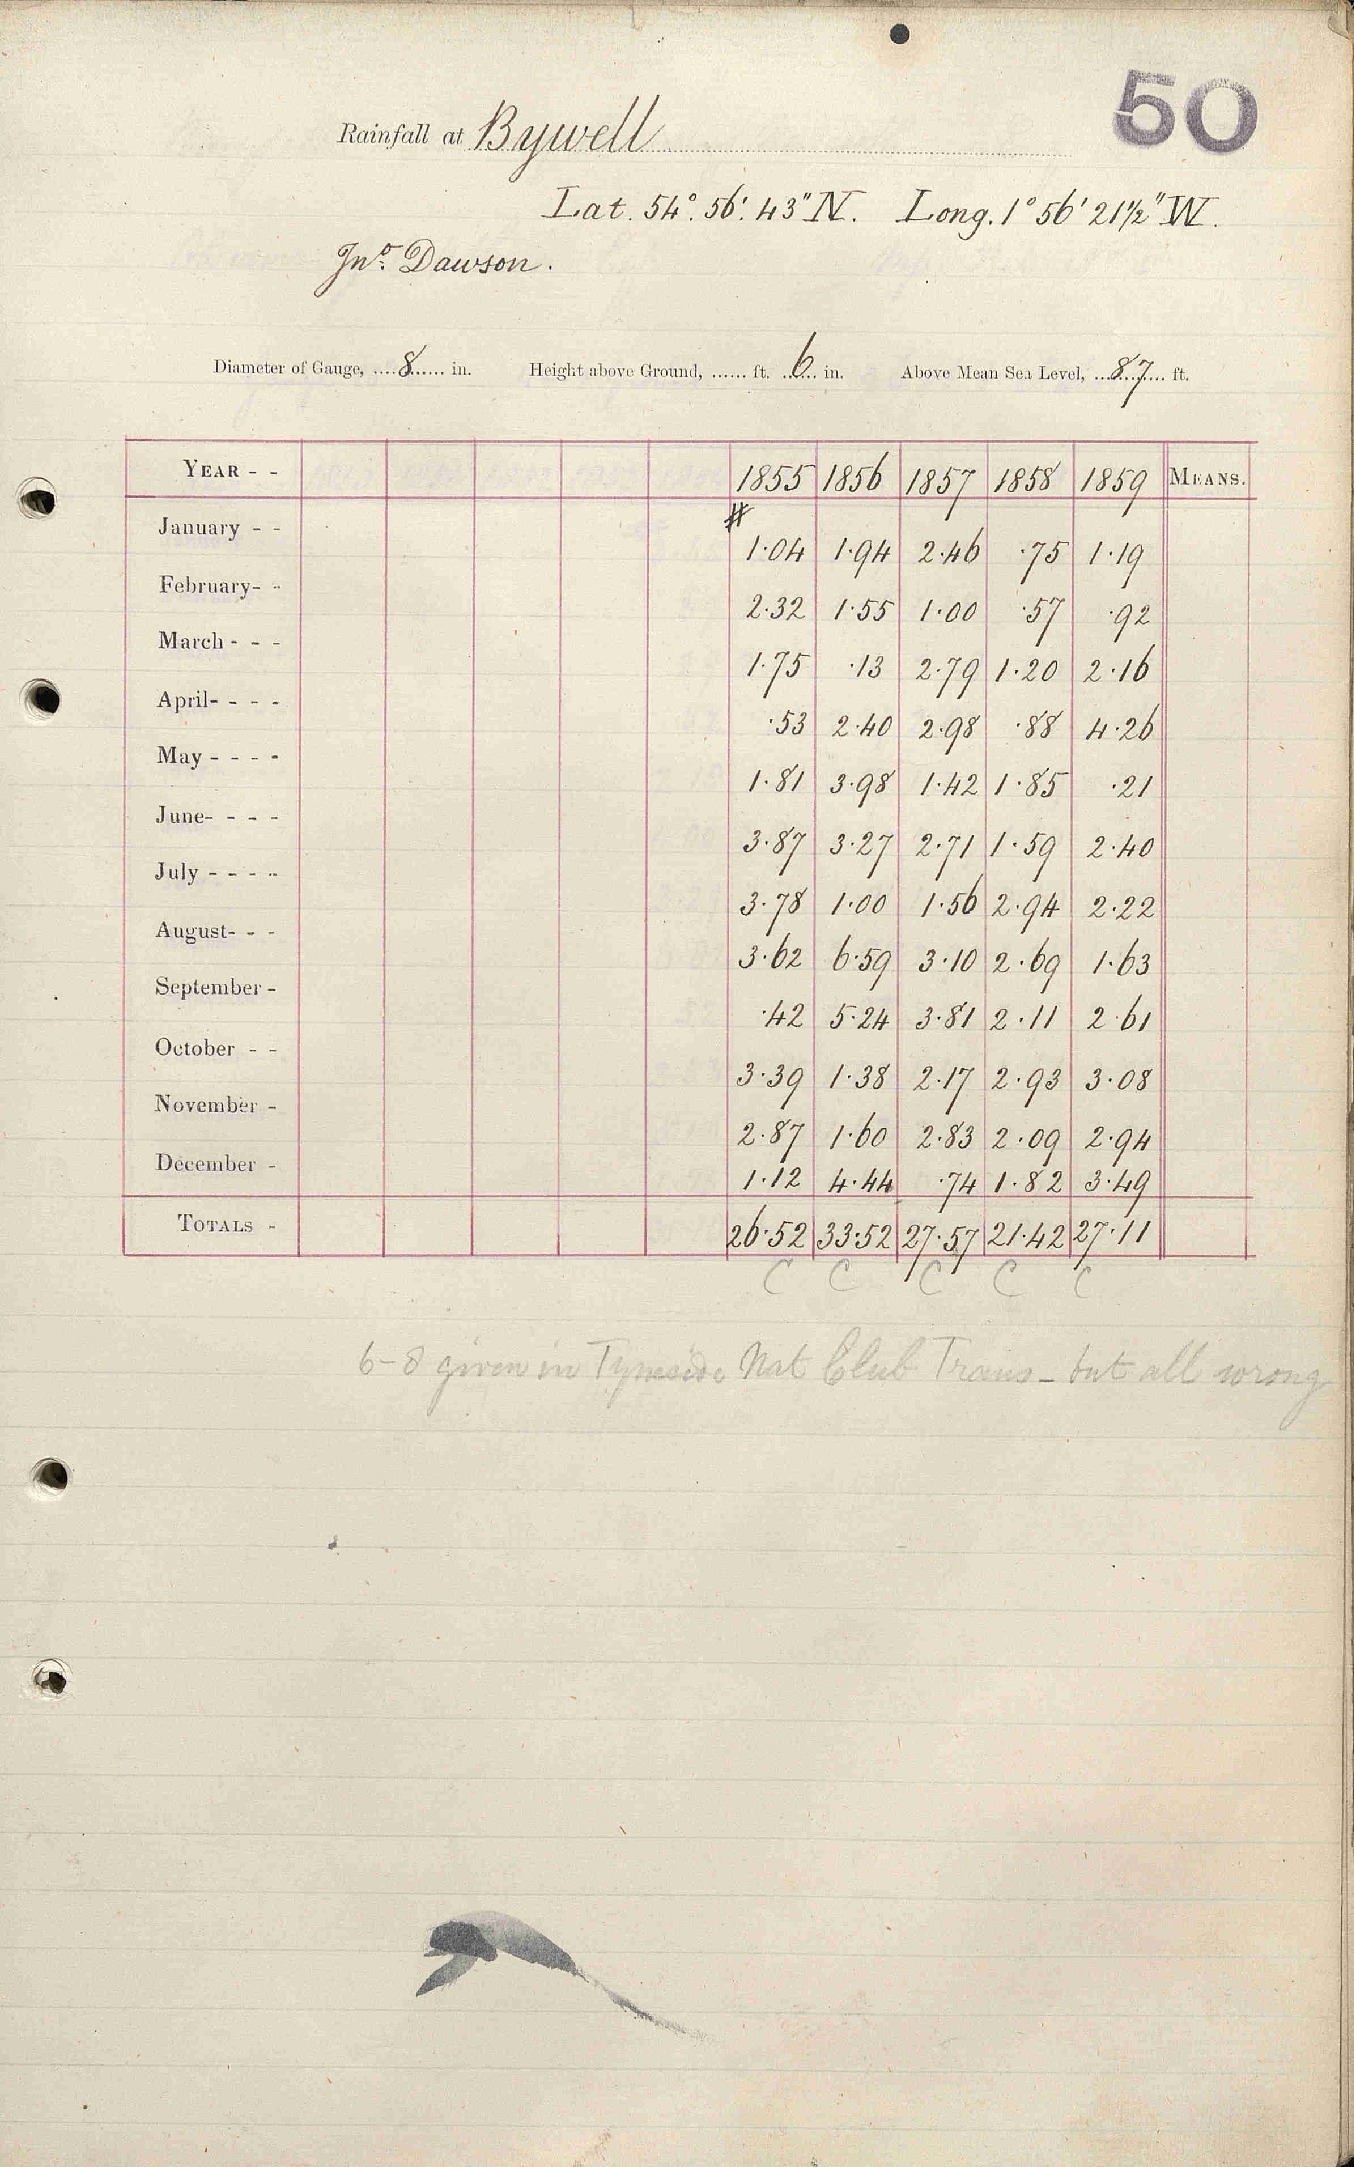 50
Rainfall at Bywell
Lat. 54°. 56'. 43" N. Long. 1° 56' 21½" W.
Jno. Dawson.
Diameter of Gauge, ....8...... in. Height above Ground, ...... ft. ..6... in. Above Mean Sea Level, ...87... ft.
YEAR - - 1855 1856 1857 1858 1859 MEANS.
#
January - - 1.04 1.94 2.46 .75 1.19
February- - 2.32 1.55 1.00 .57 .92
March - - - 1.75 .13 2.79 1.20 2.16
April- - - - .53 2.40 2.98 .88 4.26
May - - - - 1.81 3.98 1.42 1.85 .21
June- - - - 3.87 3.27 2.71 1.59 2.40
July - - - - 3.78 1.00 1.56 2.94 2.22
August- - - 3.62 6.59 3.10 2.69 1.63
September - .42 5.24 3.81 2.11 2.61
October - - 3.39 1.38 2.17 2.93 3.08
November - 2.87 1.60 2.83 2.09 2.94
December - 1.12 4.44 .74 1.82 3.49
TOTALS - 26.52 33.52 27.57 21.42 27.11
C C C C C
6-8 given in Tyneside Nat Club Trans - but all wrong